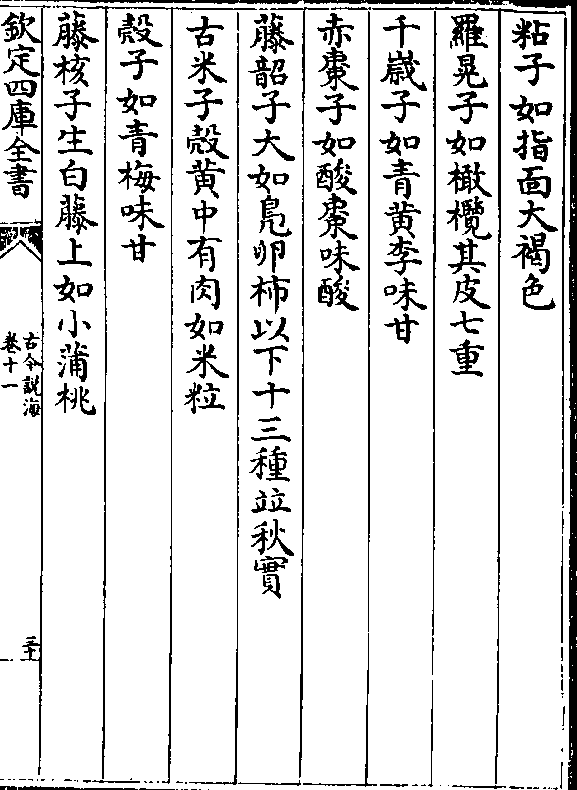 粘子如指面大褐色
羅晃子如橄欖其皮七重
千嵗子如青黄李味甘
赤棗子如酸棗味酸
藤韶子大如鳬卵柿以下十三種竝秋實
古米子殻黄中有肉如米粒
殻子如青梅味甘
藤核子生白藤上如小蒲桃
欽定四庫全書
古今説海
卷十一